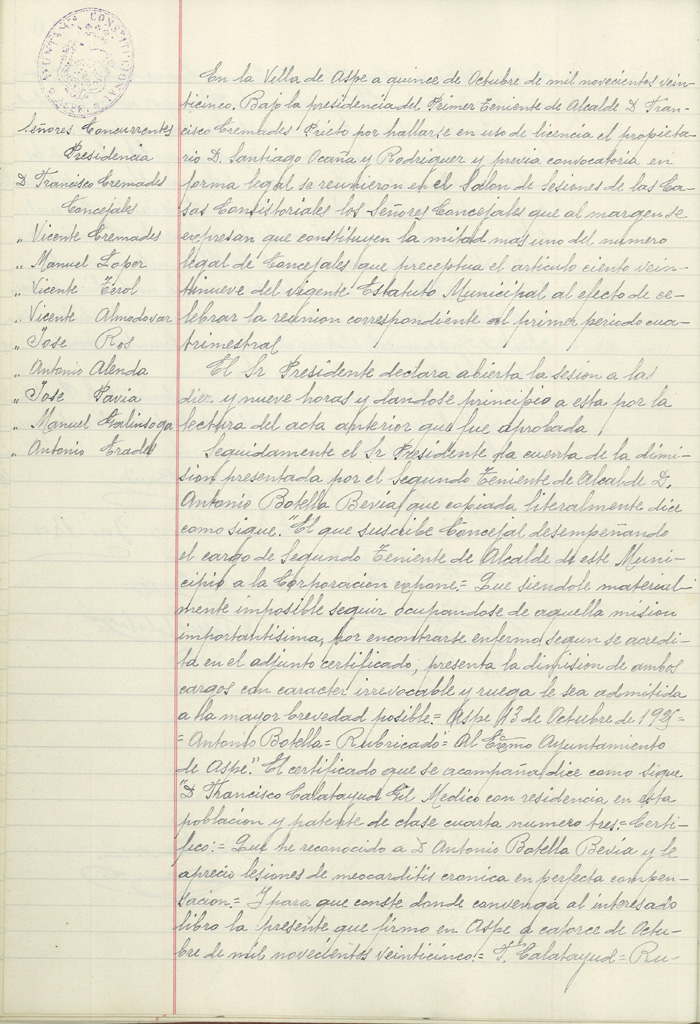 AYUNTAMTº CONSTITUCIONAL
ASPE
Señores Concurrentes
Presidencia
D Francisco Cremades
Concejales
" Vicente Cremades
" Manuel Lopez
" Vicente Cerol
" Vicente Almodovar
" Jose Ros
" Antonio Alenda
" Jose Pavia
" Manuel Galinsoga
" Antonio Eradel
En la Villa de Aspe a quince de Octubre de mil novecientos vein-
ticinco. Bajo la presidencia del Primer Teniente de Alcalde D Fran-
cisco Cremades Prieto por hallarse en uso de licencia el propieta-
rio D. Santiago Ocaña y Rodriguez y previa convocatoria en
forma legal se reunieron en el Salon de Sesiones de las Ca-
sas Consistoriales los Señores Concejales que al margen se
expresan que constituyen la mitad mas uno del numero
legal de Concejales que preceptua el articulo ciento vein-
tinueve del vigente Estatuto Municipal al efecto de ce-
lebrar la reunion correspondiente al primer periodo cua-
trimestral
El Sr Presidente declara abierta la sesion a las
diez y nueve horas y dandose principio a esta por la
lectura del acta anterior que fue aprobada
Seguidamente el Sr Presidente da cuenta de la dimi-
sion presentada por el Segundo Teniente de Alcalde D.
Antonio Botella Bevia, que copiada literalmente dice
como sigue. "El que suscribe Concejal desempeñando
el cargo de Segundo Teniente de Alcalde de este Muni-
cipio a la Corporacion expone.= Que siendole material-
mente imposible seguir ocupandose de aquella mision
importantisima, por encontrarse enfermo segun se acredi-
ta en el adjunto certificado, presenta la dimision de ambos
cargos con caracter irrevocable y ruega le sea admitida
a la mayor brevedad posible.= Aspe 13 de Octubre de 1925=
= Antonio Botella= Rubricado= Al Exmo Ayuntamiento
de Aspe." El certificado que se acompaña dice como sigue
"D Francisco Calatayud Gil Medico con residencia en esta
poblacion y patente de clase cuarta numero tres.= Certi-
fico:= Que he reconocido a D Antonio Botella Bevia y le
aprecio lesiones de miocarditis cronica en perfecta compen-
sacion.= Y para que conste donde convenga al interesado
libro la presente que firmo en Aspe a catorce de Octu-
bre de mil novecientos veinticinco.= F. Calatayud= Ru-